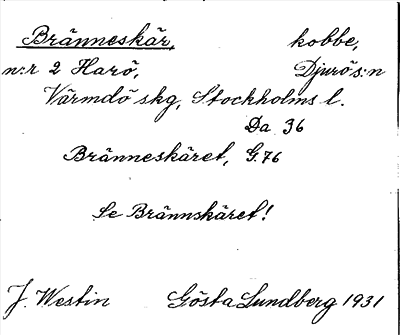 Bränneskär, kobbe,
n:r 2 Harö, Djurö s:n
Värmdö skg, Stockholms l.
Da 36
Bränneskäret, G. 76
Se Brännskäret!
J. Westin Gösta Lundberg 1931